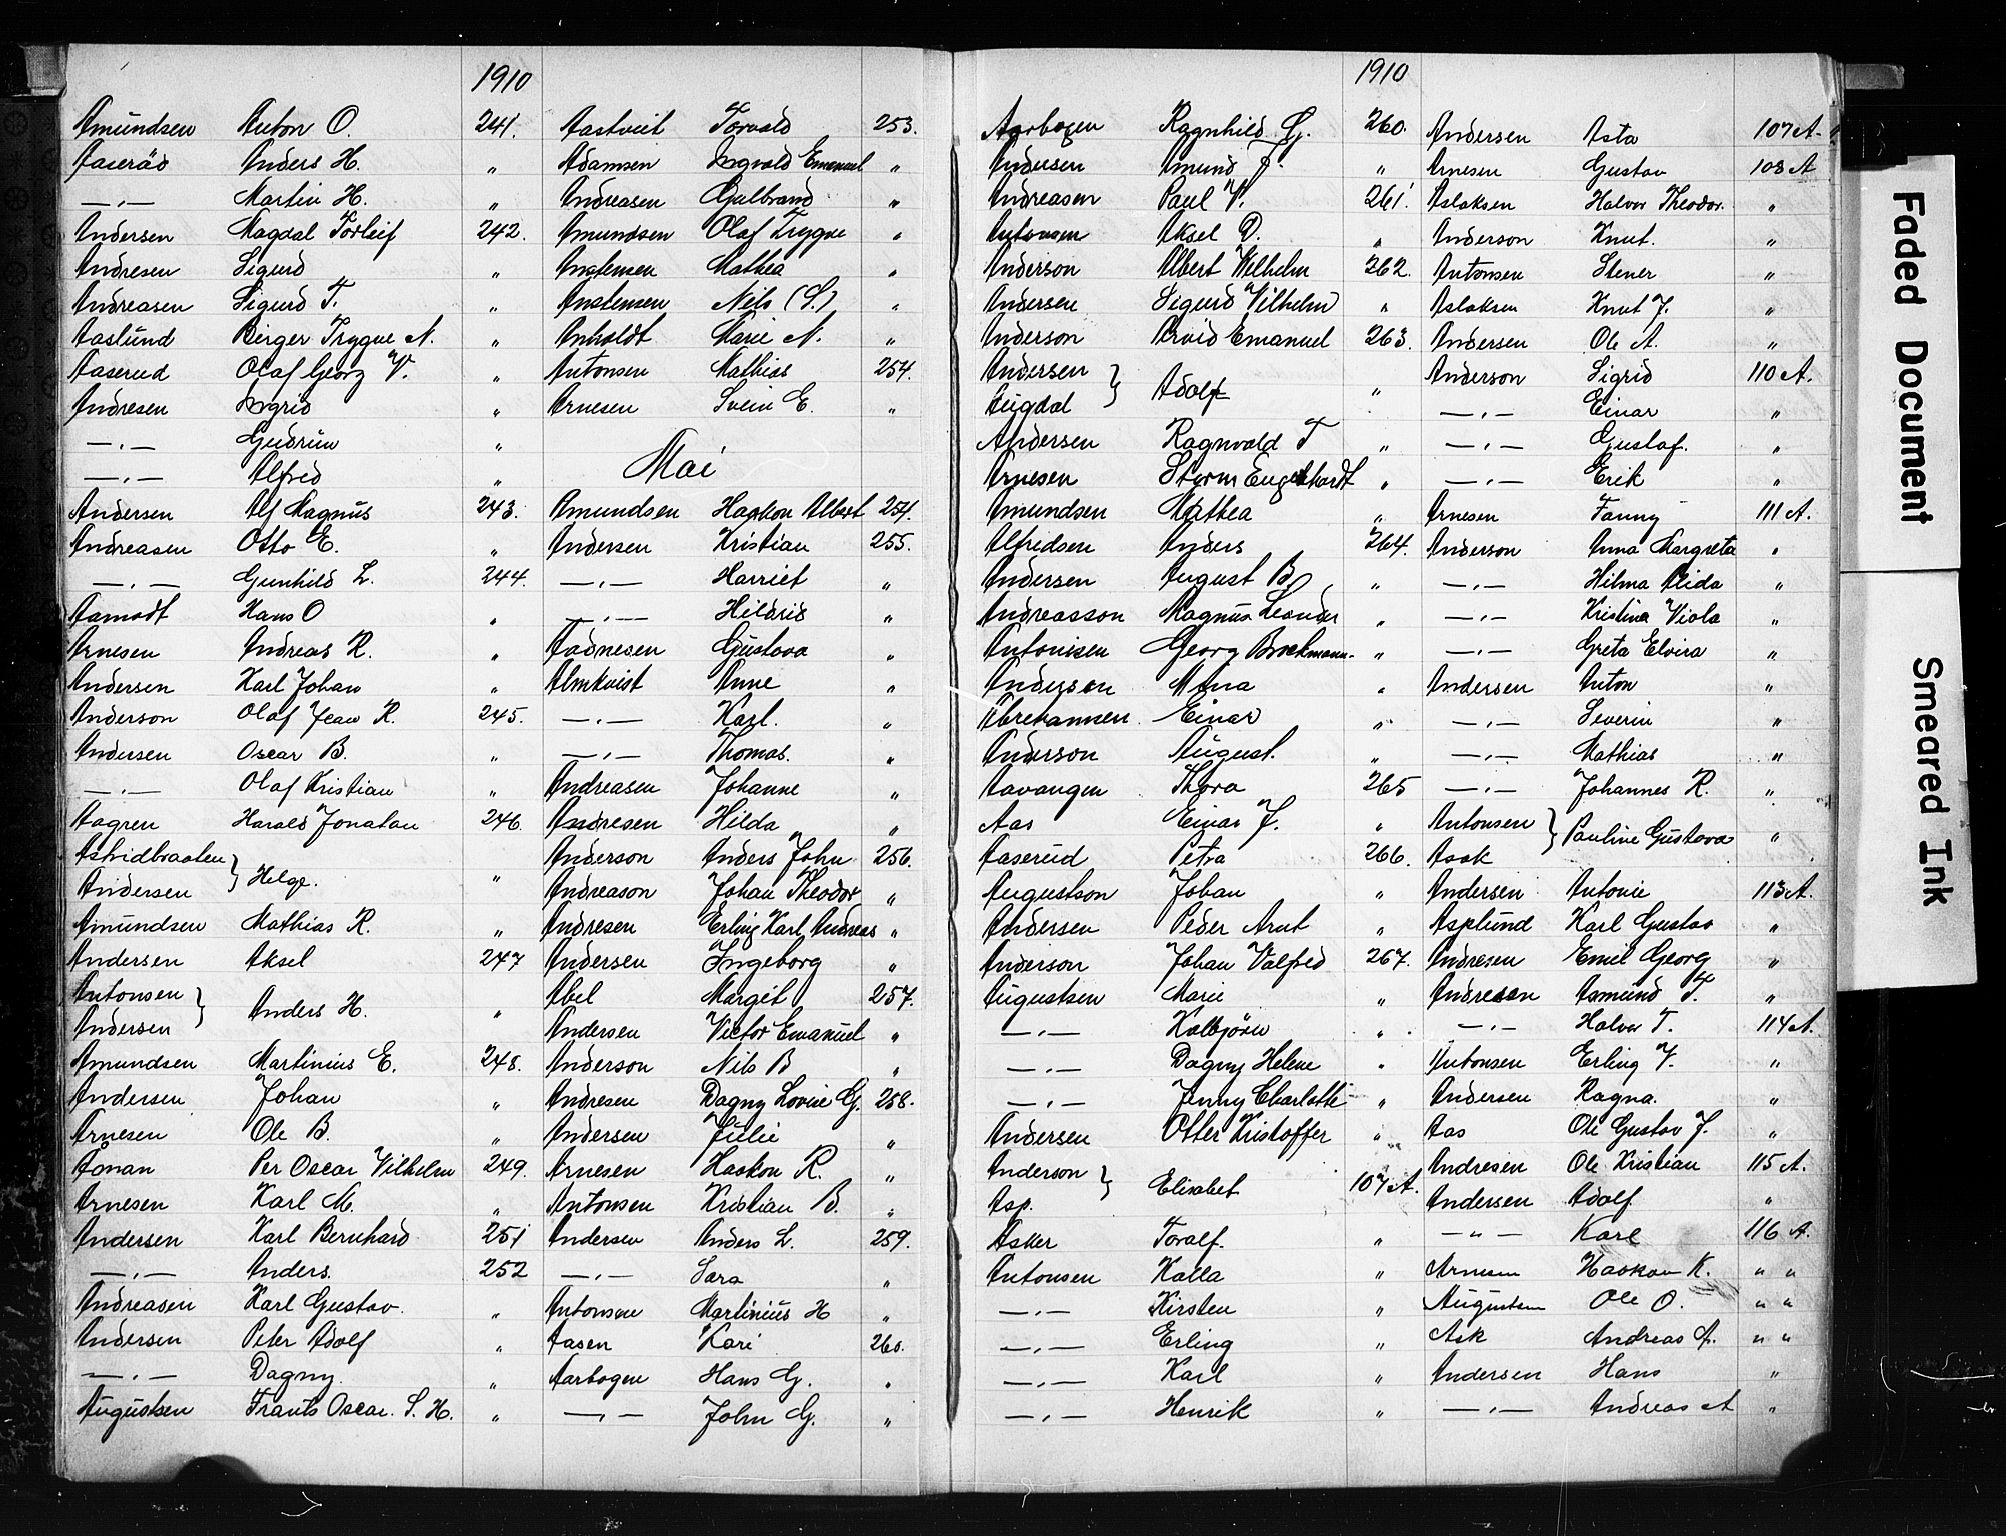 1910
Amundsen Anton O. 241.
Aaseröd Anders H. "
—„— Martin H. "
Andersen Magdal Torleif 242.
Andresen Sigurd "
Andreasen Sigurd T. "
Aaslund Birger Trygve N. "
Aaserud Olaf Georg V. "
Andresen Ingrid "
—„— Gudrun "
—„— Alfred "
Andersen Alf Magnus 243.
Andreasen Otto E. "
—„— Gunhild L. 244.
Aamodt Hans O "
Arnesen Andreas R. "
Andersen Karl Johan "
Anderson Olaf Jean R. 245.
Andersen Oscar B. "
—„— Olaf Kristian "
Aagren Harald Jonatan 246.
Astridbraaten }
Andersen } Helge. "
Amundsen Mathias R. "
Andersen Aksel 247
Antonsen }
Andersen } Anders H. "
Amundsen Martinius E. 248.
Andersen Johan "
Arnesen Ole B. "
Per Oscar Vilhelm 249.
Arnesen Karl M. "
Andersen Karl Bernhard 251
—„— Anders. 252
Andreasen Karl Gustav. "
Andersen Peter Adolf "
—„— Dagny. "
Augustsen Frants Oscar. S. H. "
Aastveit Torvald 253.
Adamsen Ingvald Emanuel "
Andreasen Gulbrand "
Amundsen Olaf Trygve "
Anstensen Mathea "
Anstensen Nils (S.) "
Anholdt Marie N. "
Antonsen Mathias 254.
Arnesen Svein E. "
Mai
Amundsen Haakon Albert 254.
Andersen Kristian 255.
—„— Harriet "
—„— Hildris "
Aadnesen Gustava "
Almkvist Anne "
—„— Karl. "
—„— Thomas. "
Andreasen Johanne "
Andresen Hilda "
Anderson Anders John 256.
Andreason Johan Theodor "
Andresen Erling Karl Andreas "
Andersen Ingeborg "
Abel Margit 257.
Andersen Victor Emanuel "
Anderson Nils B "
Andresen Dagny Lovise G. 258.
Andersen Julie "
Arnesen Haakon R. "
Antonsen Kristian B. "
Andersen Anders L. 259.
—„— Sara "
Antonsen Martinius H "
Aasen Kari 260.
Aarbogen Hans G. "
—„— John G. "
1910
Aarbogen Ragnhild G. 260.
Andersen Amund F. "
Andreasen Paul V. 261.
Antonsen Aksel D. "
Anderson Albert Wilhelm 262.
Andersen Sigurd Vilhelm "
Anderson Arvid Emanuel 263.
Andersen }
Augdal } Adolf "
Andersen Ragnvald T "
Arnesen Storm Engelhardt "
Amundsen Mathea "
Alfredsen Anders 264.
Andersen August B. "
Andreasson Magnus Leander "
Antonisen Georg Brockmann. "
Anderson Mina "
Einar "
Anderson August. "
Aavangen Thora 265
Aas Einar J. "
Aaserud Petra 266.
Augustson Johan "
Andersen Peder Arnt "
Anderson Johan Valfred 267.
Augustsen Marie "
—„— Kolbjörn "
—„— Dagny Helene "
—„— Jenny Charlotte "
Andersen Otter Kristoffer "
Anderson }
Asp. } Elisabet 107 A.
Asker Toralf. "
Antonsen Kalla "
—„— Kirsten "
—„— Erling "
—„— Karl "
—„— Henrik "
Andersen Asta 107 A.
Arnesen Gustav 108 A
Aslaksen Halvor Theodor. "
Anderson Knut. "
Antonsen Stener "
Aslaksen Knut J. "
Andersen Ole A. "
Anderson Sigrid 110 A.
—„— Einar "
—„— Gustaf. "
—„— Erik "
Arnesen Fanny 111 A.
Anderson Anna Margreta "
—„— Hilma Alida "
—„— Kristina Viola "
—„— Greta Elvira "
Andersen Anton "
—„— Severin "
—„— Mathias "
—„— Johannes R. "
Antonsen }
Asak } Pauline Gustava "
Andersen Antonie 113 A.
Asplund Karl Gustav "
Andresen Emil Georg "
Andresen Asmund T. "
—„— Halvor T. 114 A.
Antonsen Erling V. "
Andersen Ragna. "
Aas Ole Gustav J. "
Andresen Ole Kristian 115 A.
Andersen Adolf "
—"— Karl 116 A.
Arnesen Haakon K. " "
Augustsen Ole O. " "
Ask Andreas A. " "
Andersen Hans "
—„— Andreas A "
B
Faded Document
Smeared Ink